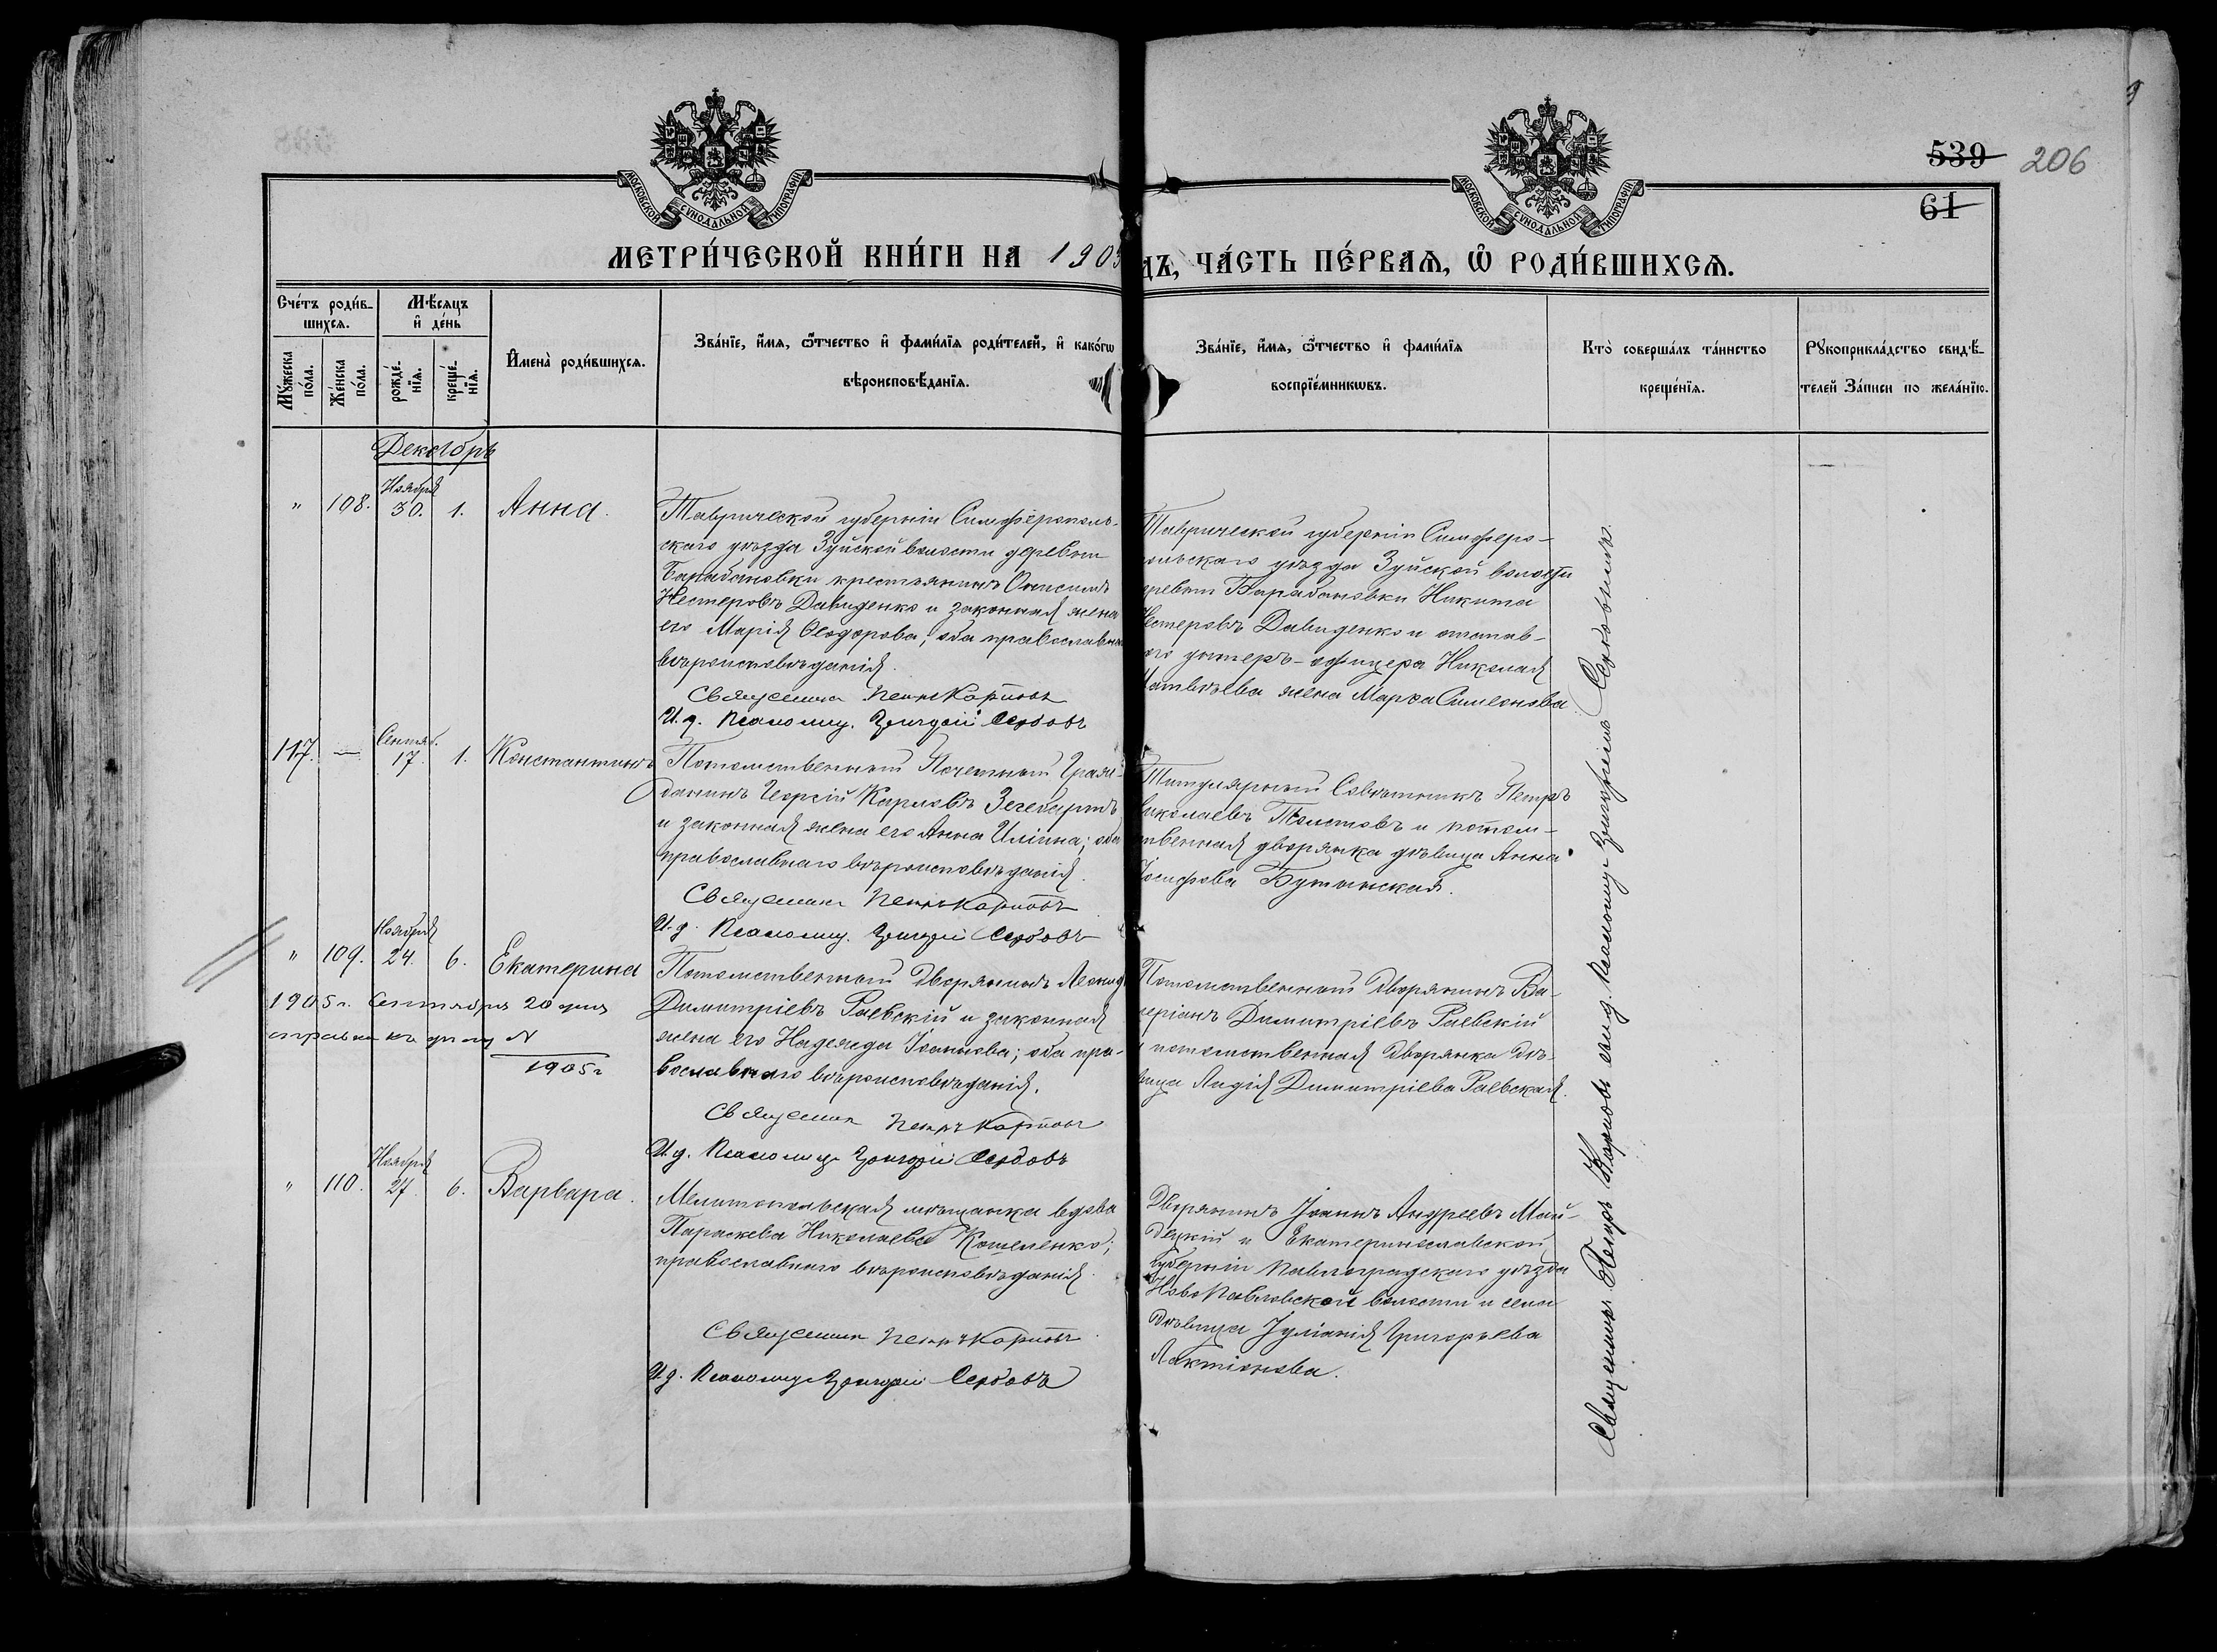 539 206
61
МОСКОВСКОЙ СѴНОДАЛЬНОЙ ТИПОГРАФІИ
МОСКОВСКОЙ СѴНОДАЛЬНОЙ ТИПОГРАФІИ
МЕТРИ́ЧЕСКОЙ КНИ́ГИ НА 1903
ДЪ, ЧА́СТЬ ПЕ́РВАѦ, Ѿ РОДИ́ВШИХСѦ.
Сче́тъ роди́в-
шихсѧ.
Мѣ́сѧцъ
и҆ де́нь
Мꙋ́жеска по́ла.
Же́нска по́ла.
рожде́-
нїѧ.
креще́-
нїѧ.
И҆мена̀ роди́вшихсѧ.
Зва́нїе, и҆́мѧ, ѻ҆́тчество и҆ фами́лїѧ роди́телей, и҆ како́гѡ
вѣроисповѣ́данїѧ.
Зва́нїе, и҆́мѧ, ѻ҆́тчество и҆ фами́лїѧ
воспрїе́мникѡвъ.
Кто̀ соверша́лъ та́инство
креще́нїѧ.
Рꙋкоприкла́дство свидѣ́-
телей за́писи по жела́нїю.
Декабрь
" 108. Ноября 30. 1. Анна.
Таврической губерніи Симферополь-
скаго уѣзда Зуйской волости деревни
Барабановки крестьянинъ Онисимъ
Нестеровъ Давиденко и законная жена
его Марія Ѳеодорова; оба православнаго
вѣроисповѣданія.
Священникъ Петръ Карповъ
И. д. Псаломщ. Григорій Сербовъ
Таврической губерніи Симферо-
польскаго уѣзда Зуйской волости
деревни Барабановки Никита
Нестеровъ Давиденко и отстав-
ого унтеръ-офицера Николая
Матвѣева жена Марѳа Симеонова
117. — Сентяб. 17. 1. Константинъ
Потомственный Почетный Граж-
данинъ Георгій Карловъ Зегебартъ
и законная жена его Анна Иліина; оба
православнаго вѣроисповѣданія.
Священникъ Петръ Карповъ
И. д. Псаломщ. Григорій Сербовъ
Титулярный Совѣтникъ Петръ
Николаевъ Толстовъ и потом-
ственная дворянка дѣвица Анна
Іосифова Бутынская.
" 109. Ноября 24. 6. Екатерина
1905 г. Сентября 20 дня
справка къ дѣлу N
1905 г
Потомственный Дворянинъ Леонид
Димитріевъ Раевскій и законная
жена его Надежда Іоаннова; оба пра-
вославнаго вѣроисповѣданія.
Священник Петръ Карповъ
И. д. Псаломщ Григорій Сербовъ
Потомственный Дворянинъ Ва-
леріанъ Димитріевъ Раевскій
и потомственная Дворянка Дѣ-
вица Лидія Димитріева Раевская.
" 110. Ноября 27. 6. Варвара.
Мелитопольская мѣщанка вдова
Параскева Николаева Кошеленко;
православнаго вѣроисповѣданія.
Священник Петръ Карповъ
И. д. Псаломщ Григорій Сербовъ
Дворянинъ Іоаннъ Андреевъ Май-
децкій и Екатеринославской
Губерніи Павлоградскаго уѣзда
НовоПавловской волости и села
Дѣвица Іуліанія Григорьева
Лактіонова.
Священникъ Петръ Карповъ Псаломщ. Григорій Сербовъ.